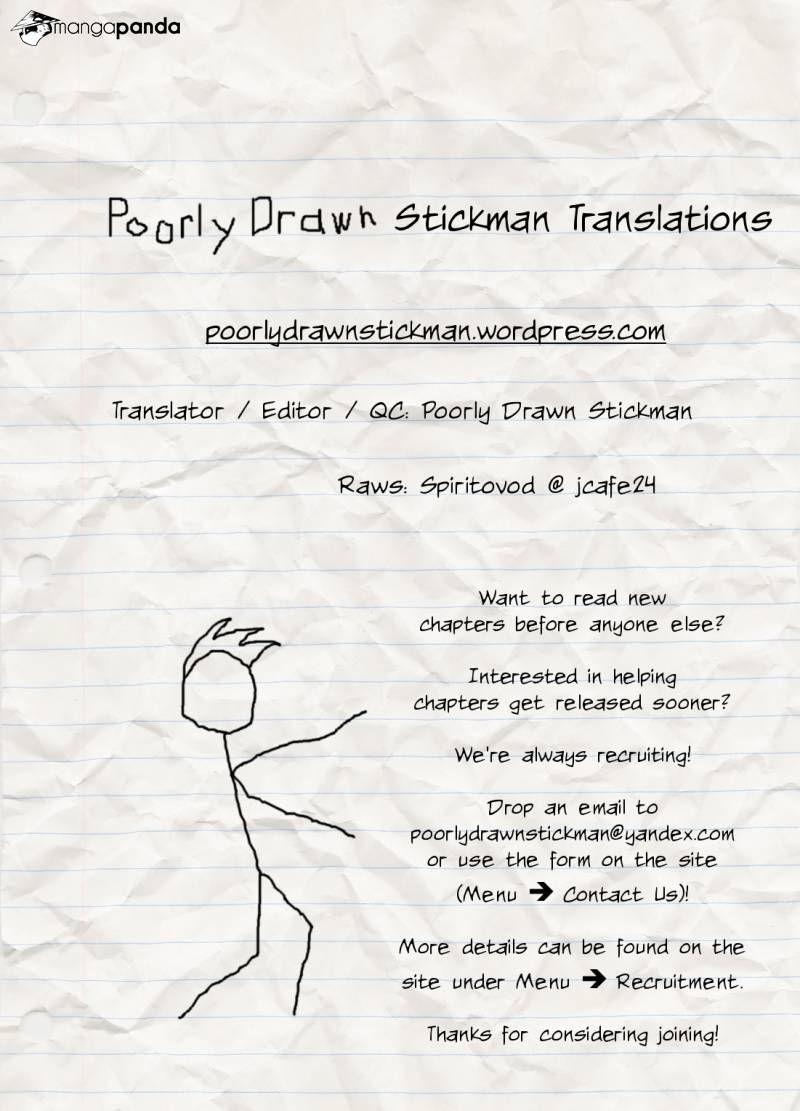 mangapanda
Poorly Drawn Stickman Translations
poorlydrawnstickman.wordpress.com
Translator / Editor / QC: Poorly Drawn Stickman
Raws: Spiritovod @ jcafe24
Want to read new
chapters before anyone else?
Interested in helping
chapters get released sooner?
We're always recruiting!
Drop an email to
poorlydrawnstickman@yandex.com
or use the form on the site
(Menu ➔ Contact Us)!
More details can be found on the
site under Menu ➔ Recruitment.
Thanks for considering joining!